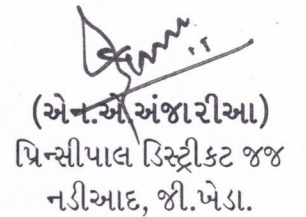 (એન.એ.અંજારીઆ)
પ્રિન્સીપાલ ડિસ્ટ્રીકટ જજ
નડીઆદ, જી.ખેડા.